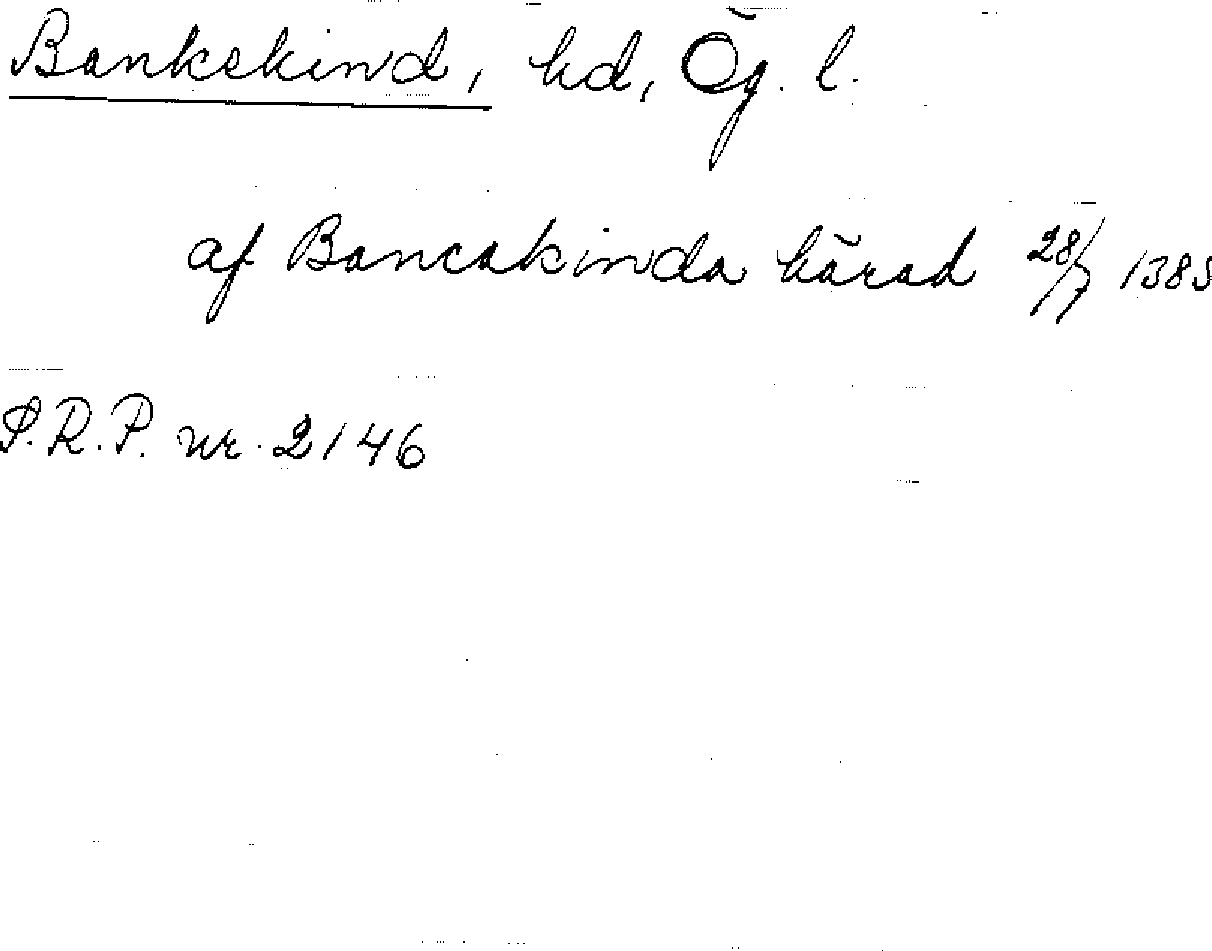 Bankekind, hd, Ög. l.
af Bancakinda härad 28/7 1385
S.R.P. nr. 2146